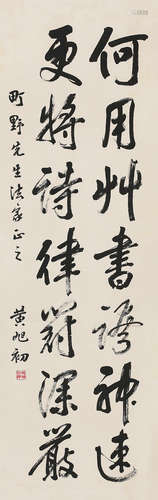 何用艸書誇神速
更將詩律鬥深嚴
町野先生法家正之
黃旭初